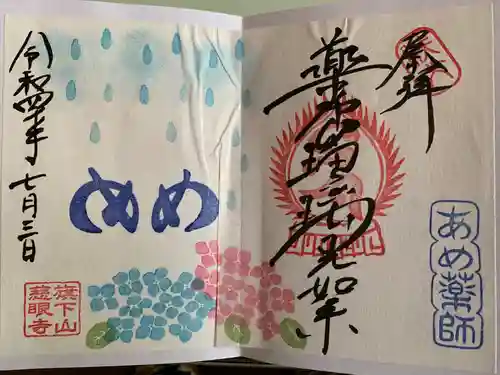 奉拝
薬師瑠璃光如来
あめ薬師
め
令和四年
七月三日
旗下山
慈眼寺